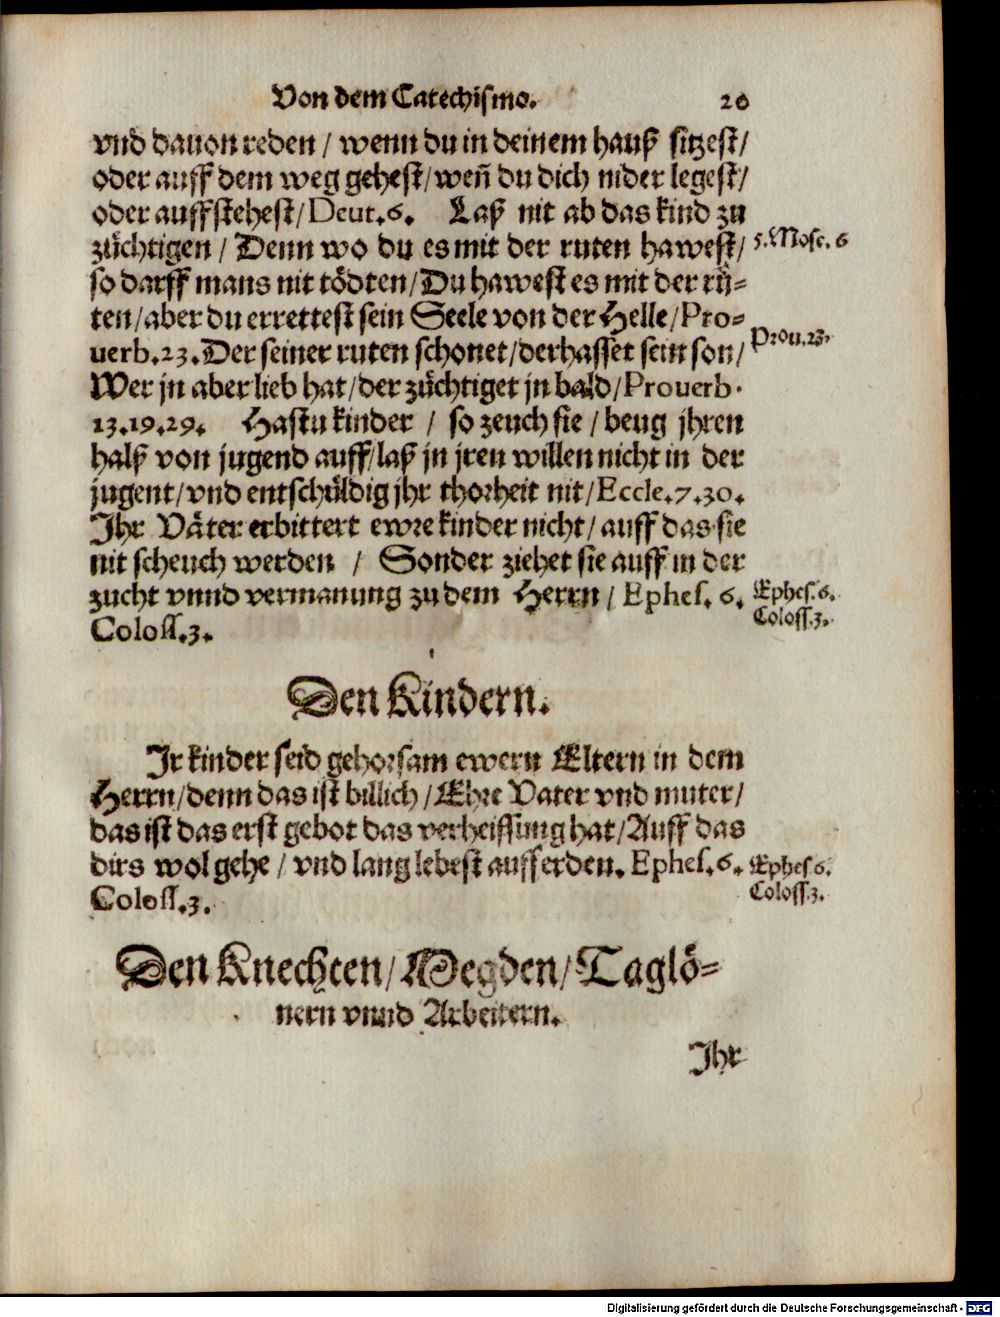 Von dem Catechismo. 20
vnd dauon reden / wenn du in deinem hauß sitzest/
oder auff dem weg gehest/ weñ du dich nider legest/
oder auffstehest/ Deut.6. Laß nit ab das kind zu
züchtigen / Denn wo du es mit der ruten hawest/ 5.Mose. 6
so darff mans nit tödten/ Du hawest es mit der rü-
ten/ aber du errettest sein Seele von der Helle/ Pro-
uerb.23. Der seiner ruten schonet/ der hasset sein son/ Prou.23.
Wer jn aber lieb hat/ der züchtiget jn bald/ Prouerb.
13.19.29. Hastu kinder / so zeuch sie / beug jhren
halß von jugend auff/ laß jn jren willen nicht in der
jugent/ vnd entschüldig jhr thorheit nit/ Eccle.7.30.
Ihr Väter erbittert ewre kinder nicht/ auff das sie
nit scheuch werden / Sonder ziehet sie auff in der
zucht vnnd vermanung zu dem Herrn/ Ephes. 6. Ephes.6.
Coloss.3. Coloss.3.
Den Kindern.
Ir kinder seid gehorsam ewern Eltern in dem
Herrn/ denn das ist billich/ Ehre Vater vnd muter/
das ist das erst gebot das verheissung hat/ Auff das
dirs wol gehe / vnd lang lebest auff erden. Ephes.6. Ephes 6.
Coloss.3. Coloss.3.
Den Knechten/ Megden/ Taglö-
nern vnnd Arbeitern.
Ihr
Digitalisierung gefördert durch die Deutsche Forschungsgemeinschaft - DFG